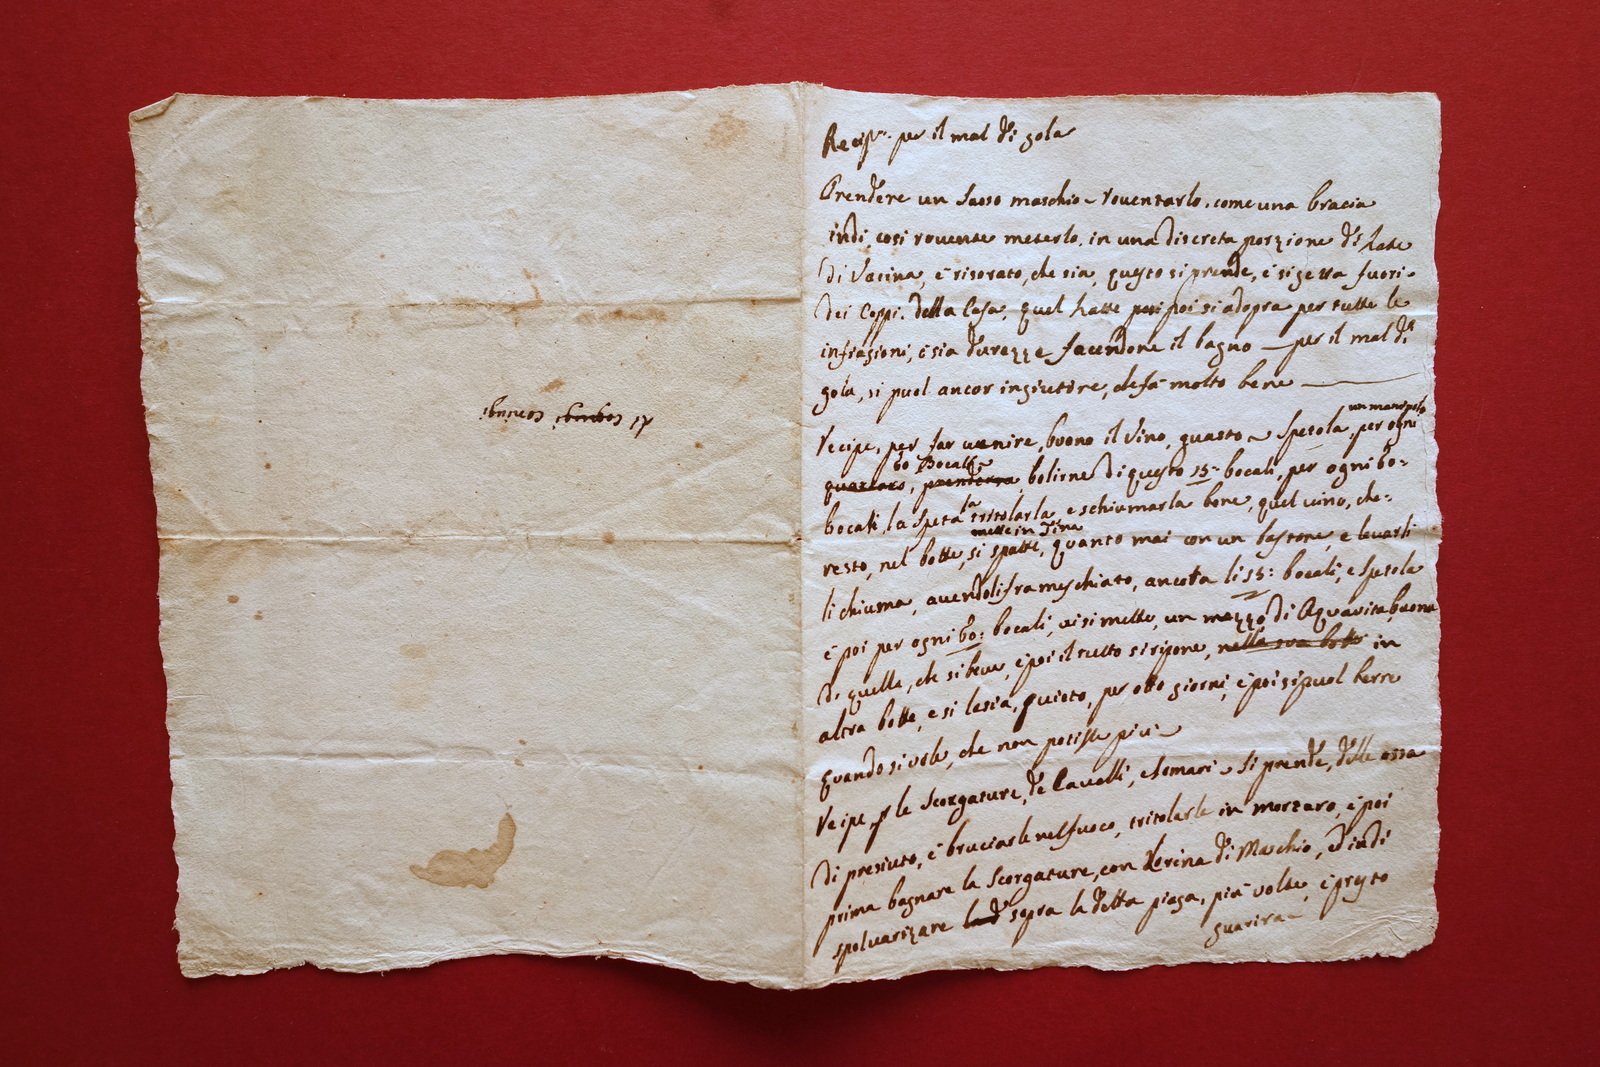 Recip.^e per il mal di gola
Prendere un sasso maschio rouentarlo, come una bracia
indi, cosi rouente meterlo, in una discreta porzione di Latte
di Vacina, è risorato, che sia, questo si prende, è si getta fuori
dei Coppi, della Casa, quel Latte poi si adopra per tutte le
infrasioni, è sia durezze facendone il bagno — per il mal di
gola, si puol ancor ingiutire, che fà molto bene
un manipolo
recipe, per far uenire, buono il Vino, guasto Spetola, per ogni
60 Bocali
bolirne di questo 15: bocali, per ogni 60:
bocali, la Speta la tritolarla, e schiumarla bene, quel uino, che
mette in Tina
resto, nel botte, si sbatte, quanto mai con un bastone, e leuarli
li chiuma, auendoli frameschiato, ancora li 15: bocali, e Spetola
è poi per ogni 60: bocali, ui si mette, un mezzo di Aquauita, buona
di quella, che si beue, è poi il tutto si ripone, nella sua botte in
altra botte, e si lasia, quieto, per otto giorni, è poi si puol berre
quando si uole, che non patisse più
recipe, p le Scorgature, de Caualli, e Somari Si prende, delle ossa
di presiuto, è bruciarle nel fuoco, tritolarle in mortaro, è poi
prima bagnare la Scorgature, con Lorina di Maschio, ed indi
spoluarizare sopra la detta piaga, più uolte, è presto
guarira
Coniugi